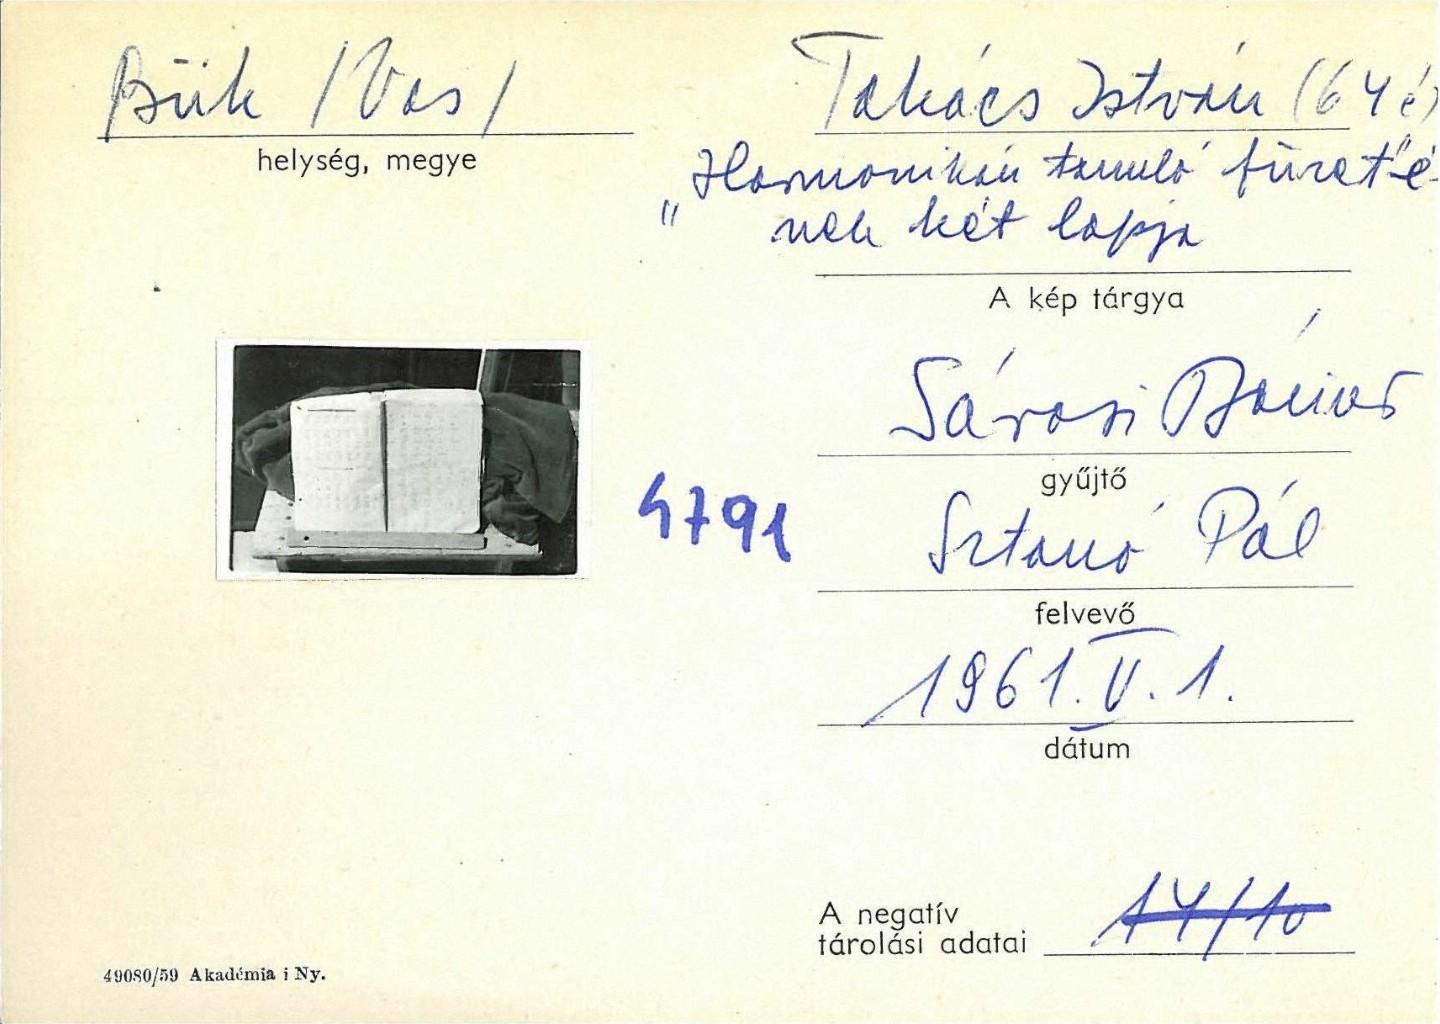 Bük /Vas/
helység, megye
Takács István (64 é)
„Harmonikán tanuló füzet"é-
nek két lapja
A kép tárgya
Sárosi Bálint
gyűjtő
4791
Sztanó Pál
felvevő
1961. V. 1.
dátum
A negatív
tárolási adatai 14/10
49080/59 Akadémia i Ny.